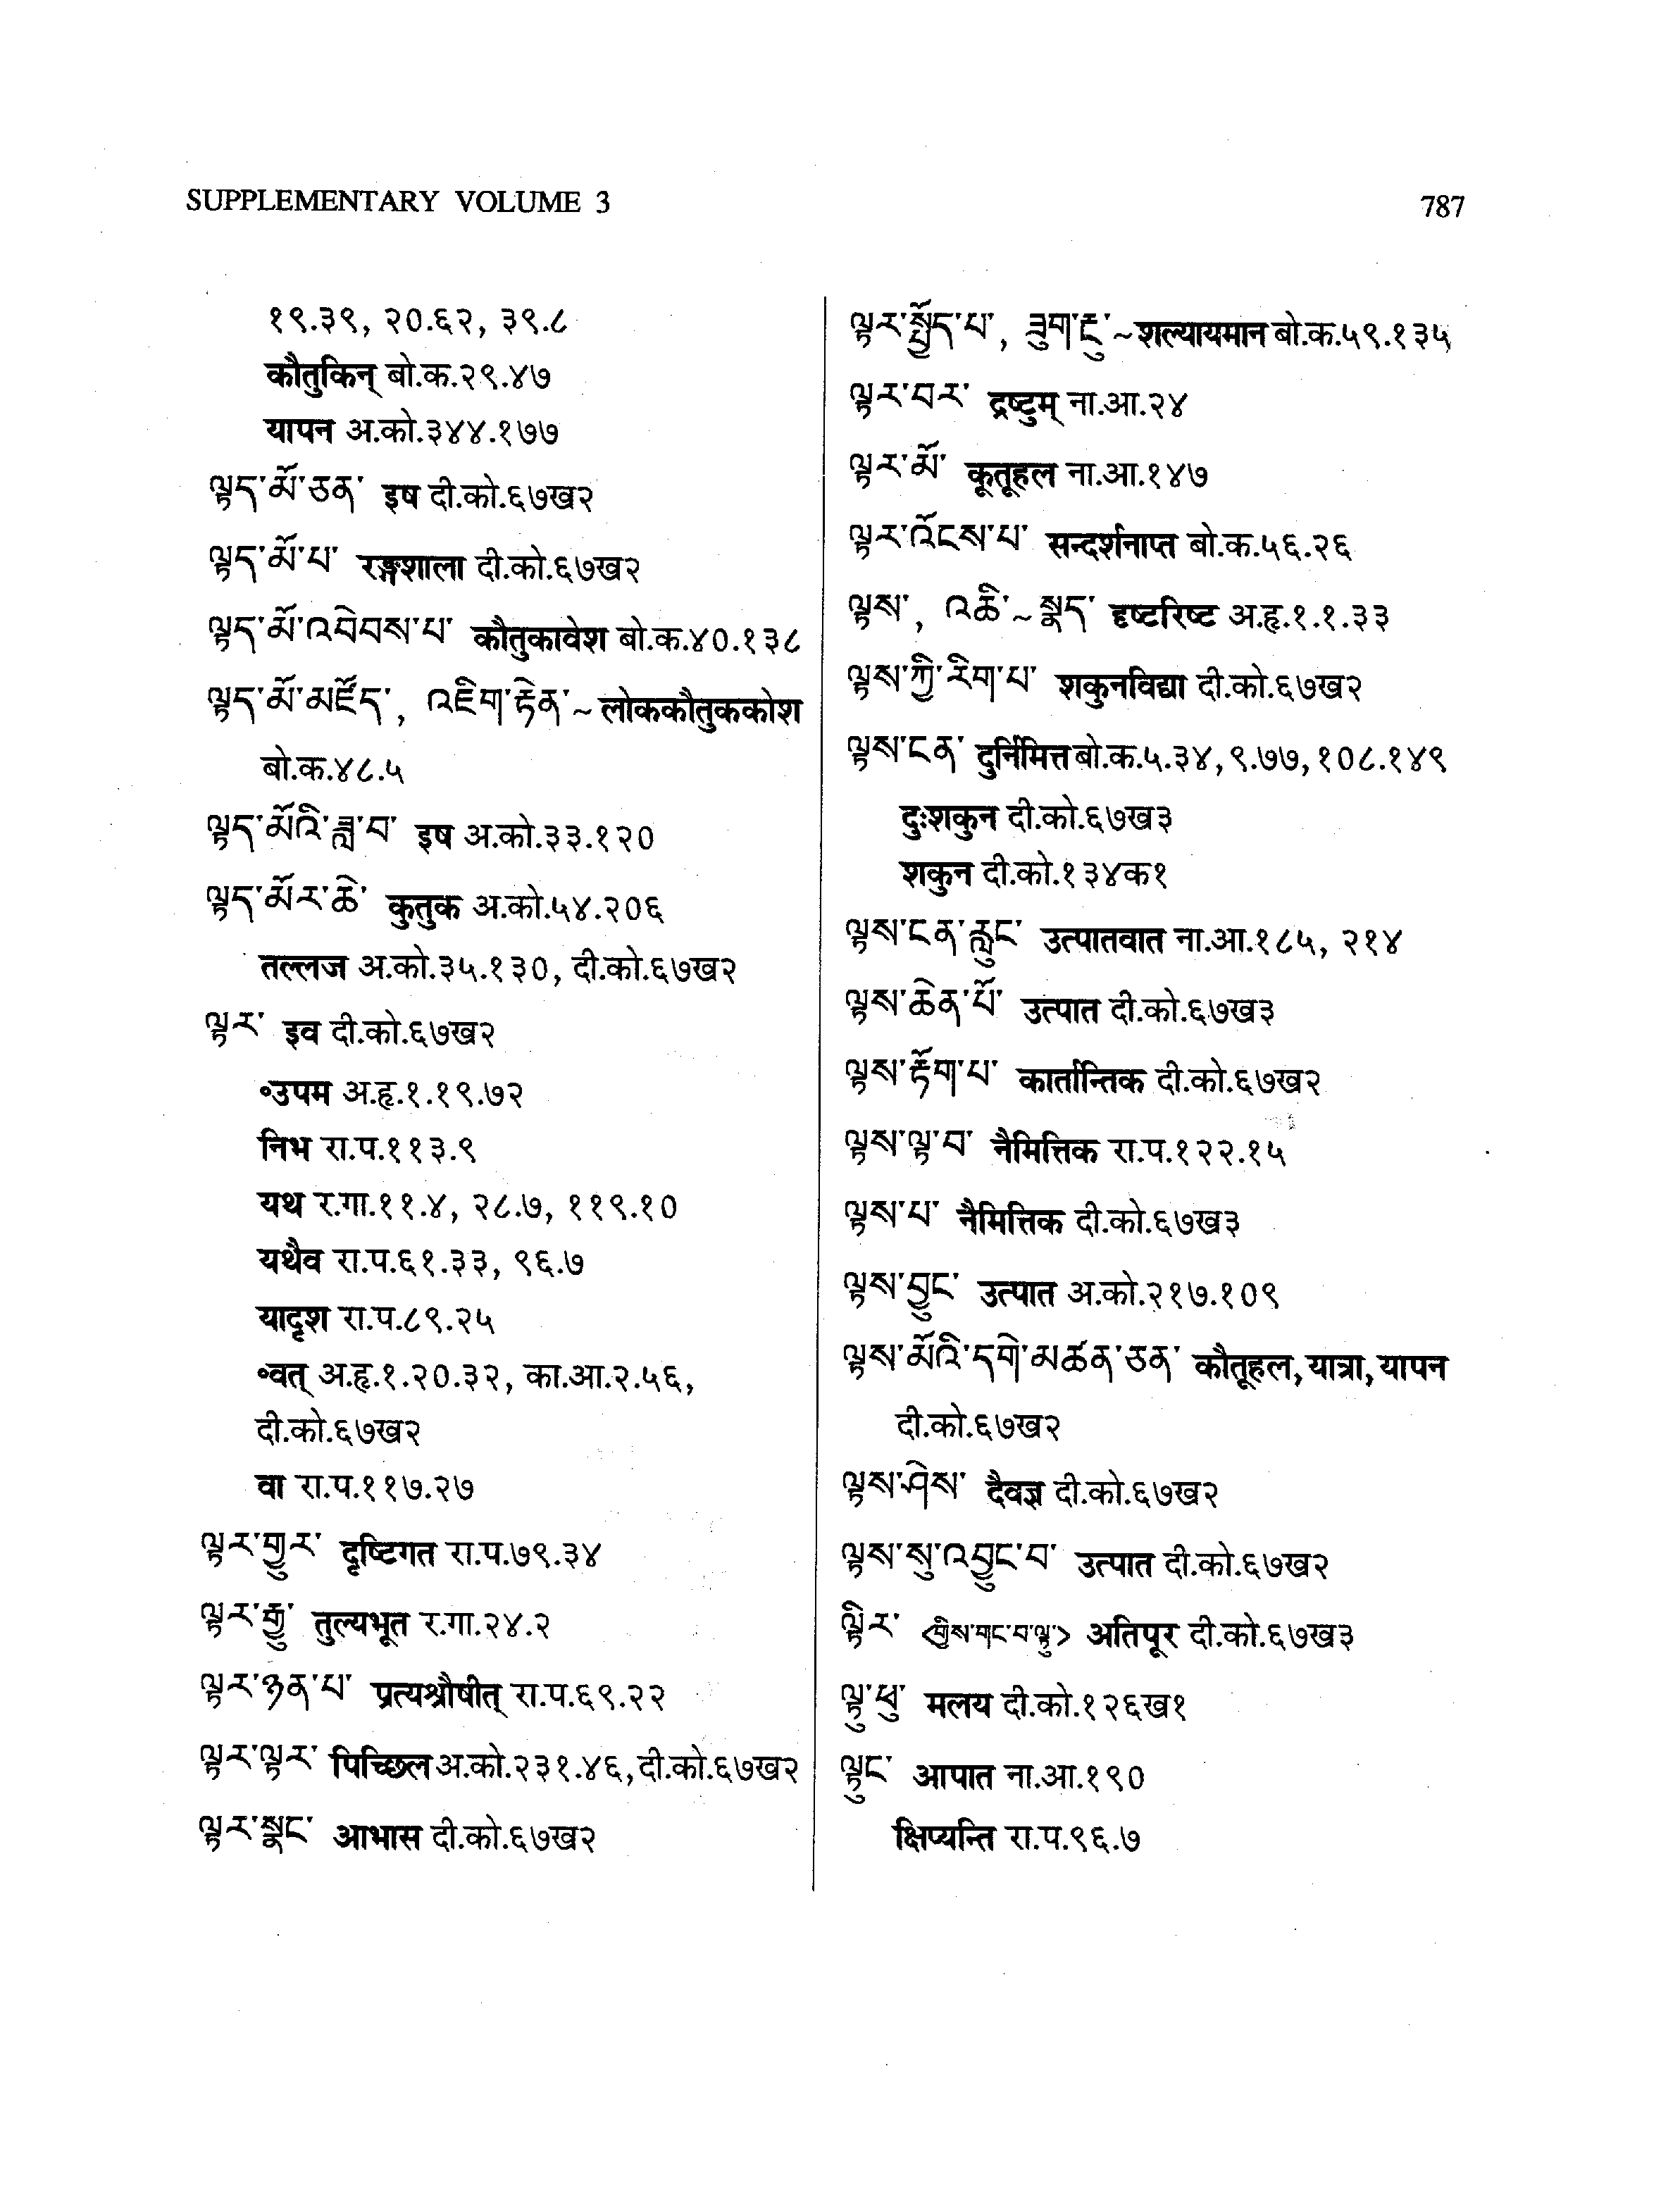 SUPPLEMENTARY VOLUME 3
787
१९.३९, २०.६२, ३९.८
कौतुकिन् बो.क.२९.४७
यापन अ.को.३४४.१७७
ལྟད་མོ་ཅན་ इष दी.को.६७ख२
ལྟད་མོ་པ་ रङ्गशाला दी.को.६७ख२
ལྟད་མོ་འབེབས་པ་ कौतुकावेश बो.क.४०.१३८
ལྟད་མོ་མཛོད་, འཇིག་རྟེན་~ लोककौतुककोश
बो.क.४८.५
ལྟད་མོའི་ཟླ་བ་ इष अ.को.३३.१२०
ལྟད་མོར་ཆེ་ कुतुक अ.को.५४.२०६
तल्लज अ.को.३५.१३०, दी.को.६७ख२
ལྟར་ इव दी.को.६७ख२
॰उपम अ.हृ.१.१९.७२
निभ रा.प.११३.९
यथ र.गा.११.४, २८.७, ११९.१०
यथैव रा.प.६१.३३, ९६.७
यादृश रा.प.८९.२५
॰वत् अ.हृ.१.२०.३२, का.आ.२.५६,
दी.को.६७ख२
वा रा.प.११७.२७
ལྟར་གྱུར་ दृष्टिगत रा.प.७९.३४
ལྟར་རྒྱུ་ तुल्यभूत र.गा.२४.२
ལྟར་ཉན་པ་ प्रत्यश्रौषीत् रा.प.६९.२२
ལྟར་ལྟར་ पिच्छिल अ.को.२३१.४६, दी.को.६७ख२
ལྟར་སྣང་ आभास दी.को.६७ख२
ལྟར་སྤྱོད་པ་, ཟུག་རྔུ་~ शल्यायमान बो.क.५९.१३५
ལྟར་བར་ द्रष्टुम् ना.आ.२४
ལྟར་མོ་ कूतूहल ना.आ.१४७
ལྟར་འོངས་པ་ सन्दर्शनाप्त बो.क.५६.२६
ལྟས་, འཆི་~སྣད་ दृष्टरिष्ट अ.हृ.१.१.३३
ལྟས་ཀྱི་རིག་པ་ शकुनविद्या दी.को.६७ख२
ལྟས་ངན་ दुर्निमित्त बो.क.५.३४, ९.७७, १०८.१४९
दुःशकुन दी.को.६७ख३
शकुन दी.को.१३४क१
ལྟས་ངན་རླུང་ उत्पातवात ना.आ.१८५, २१४
ལྟས་ཆེན་པོ་ उत्पात दी.को.६७ख३
ལྟས་རྟོག་པ་ कार्तान्तिक दी.को.६७ख२
ལྟས་ལྟ་བ་ नैमित्तिक रा.प.१२२.१५
ལྟས་པ་ नैमित्तिक दी.को.६७ख३
ལྟས་བྱུང་ उत्पात अ.को.२१७.१०९
ལྟས་མོའི་དགེ་མཚན་ཅན་ कौतूहल, यात्रा, यापन
दी.को.६७ख२
ལྟས་ཤེས་ दैवज्ञ दी.को.६७ख२
ལྟས་སུ་འབྱུང་བ་ उत्पात दी.को.६७ख२
ལྟིར་ <གྱིས་གང་བ་ལྟ་> अतिपूर दी.को.६७ख३
ལྟུ་ཕུ་ मलय दी.को.१२६ख१
ལྟུང་ आपात ना.आ.१९०
क्षिप्यन्ति रा.प.९६.७